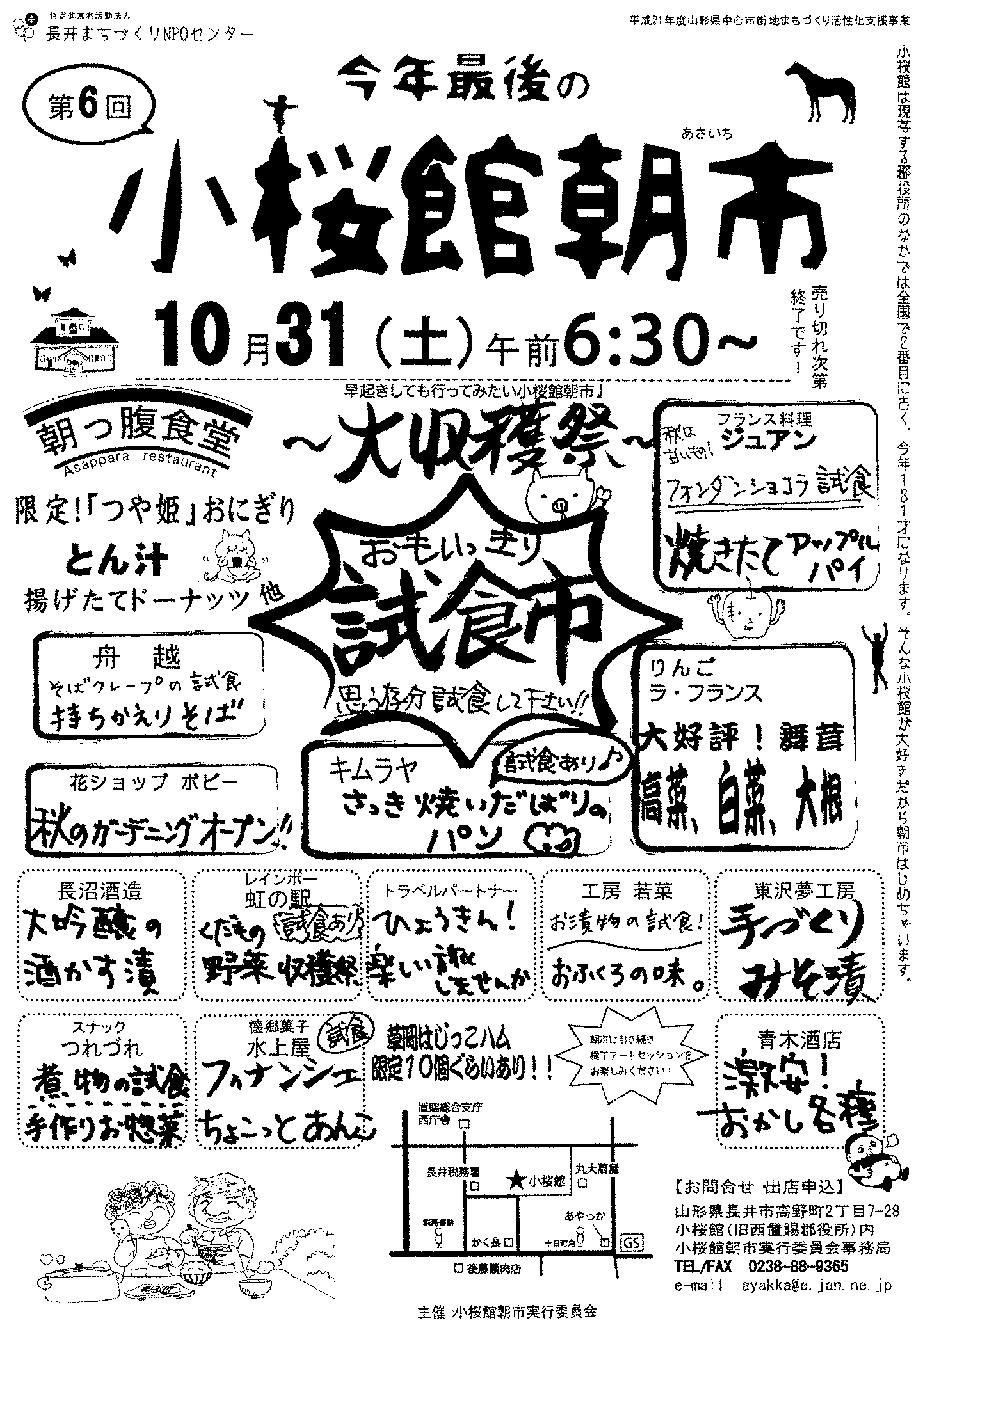 特定非営利活動法人
長井まちづくりNPOセンター
平成21年度山形県中心市街地まちづくり活性化支援事業
第6回
今年最後の
あさいち
小桜館朝市
10月31(土)午前6:30~
売り切れ次第
終了です!
小桜館は現存する郡役所のなかでは全国で2番目に古く、今年131才になります。そんな小桜館が大好きだから朝市はじめちゃいます。
早起きしても行ってみたい小桜館朝市♩
~大収穫祭~
朝っ腹食堂
Asappara restaurant
限定!「つや姫」おにぎり
とん汁
揚げたてドーナッツ 他
おもいっきり
試食市
思う存分試食して下さい!!
フランス料理
ジュアン
秋は
甘い物!
フォンダンショコラ 試食
焼きたて アップル
パイ
舟 越
そばクレープの試食
持ちかえりそば
りんご
ラ・フランス
大好評!舞茸
高菜、白菜、大根
花ショップ ポピー
秋のガーデニングオープン!!
キムラヤ
試食あり♪
さっき焼いだばりの
パン
長沼酒造
大吟醸の
酒かす漬
レインボー
虹の駅
くだもの 試食あり
野菜 収穫祭
トラベルパートナー
ひょうきん!
楽しい旅
しませんか
工房 若菜
お漬物の試食!
おふくろの味。
東沢夢工房
手づくり
みそ漬
スナック
つれづれ
煮物の試食
手作りお惣菜
水上屋
試食
フィナンシェ
ちょこっとあんこ
草岡はじっこハム
限定10個ぐらいあり!!
朝市に引き続き
横丁アートセッションを
お楽しみください!
青木酒店
激安!
おかし各種
置賜総合支庁
西庁舎
長井税務署
★小桜館
丸大扇屋
あやっか
かく長
十日町角
GS
後藤精肉店
【お問合せ・出店申込】
山形県長井市高野町2丁目7-28
小桜館(旧西置賜郡役所)内
小桜館朝市実行委員会事務局
TEL/FAX 0238-88-9365
e-mail ayakka@e.jan.ne.jp
主催 小桜館朝市実行委員会